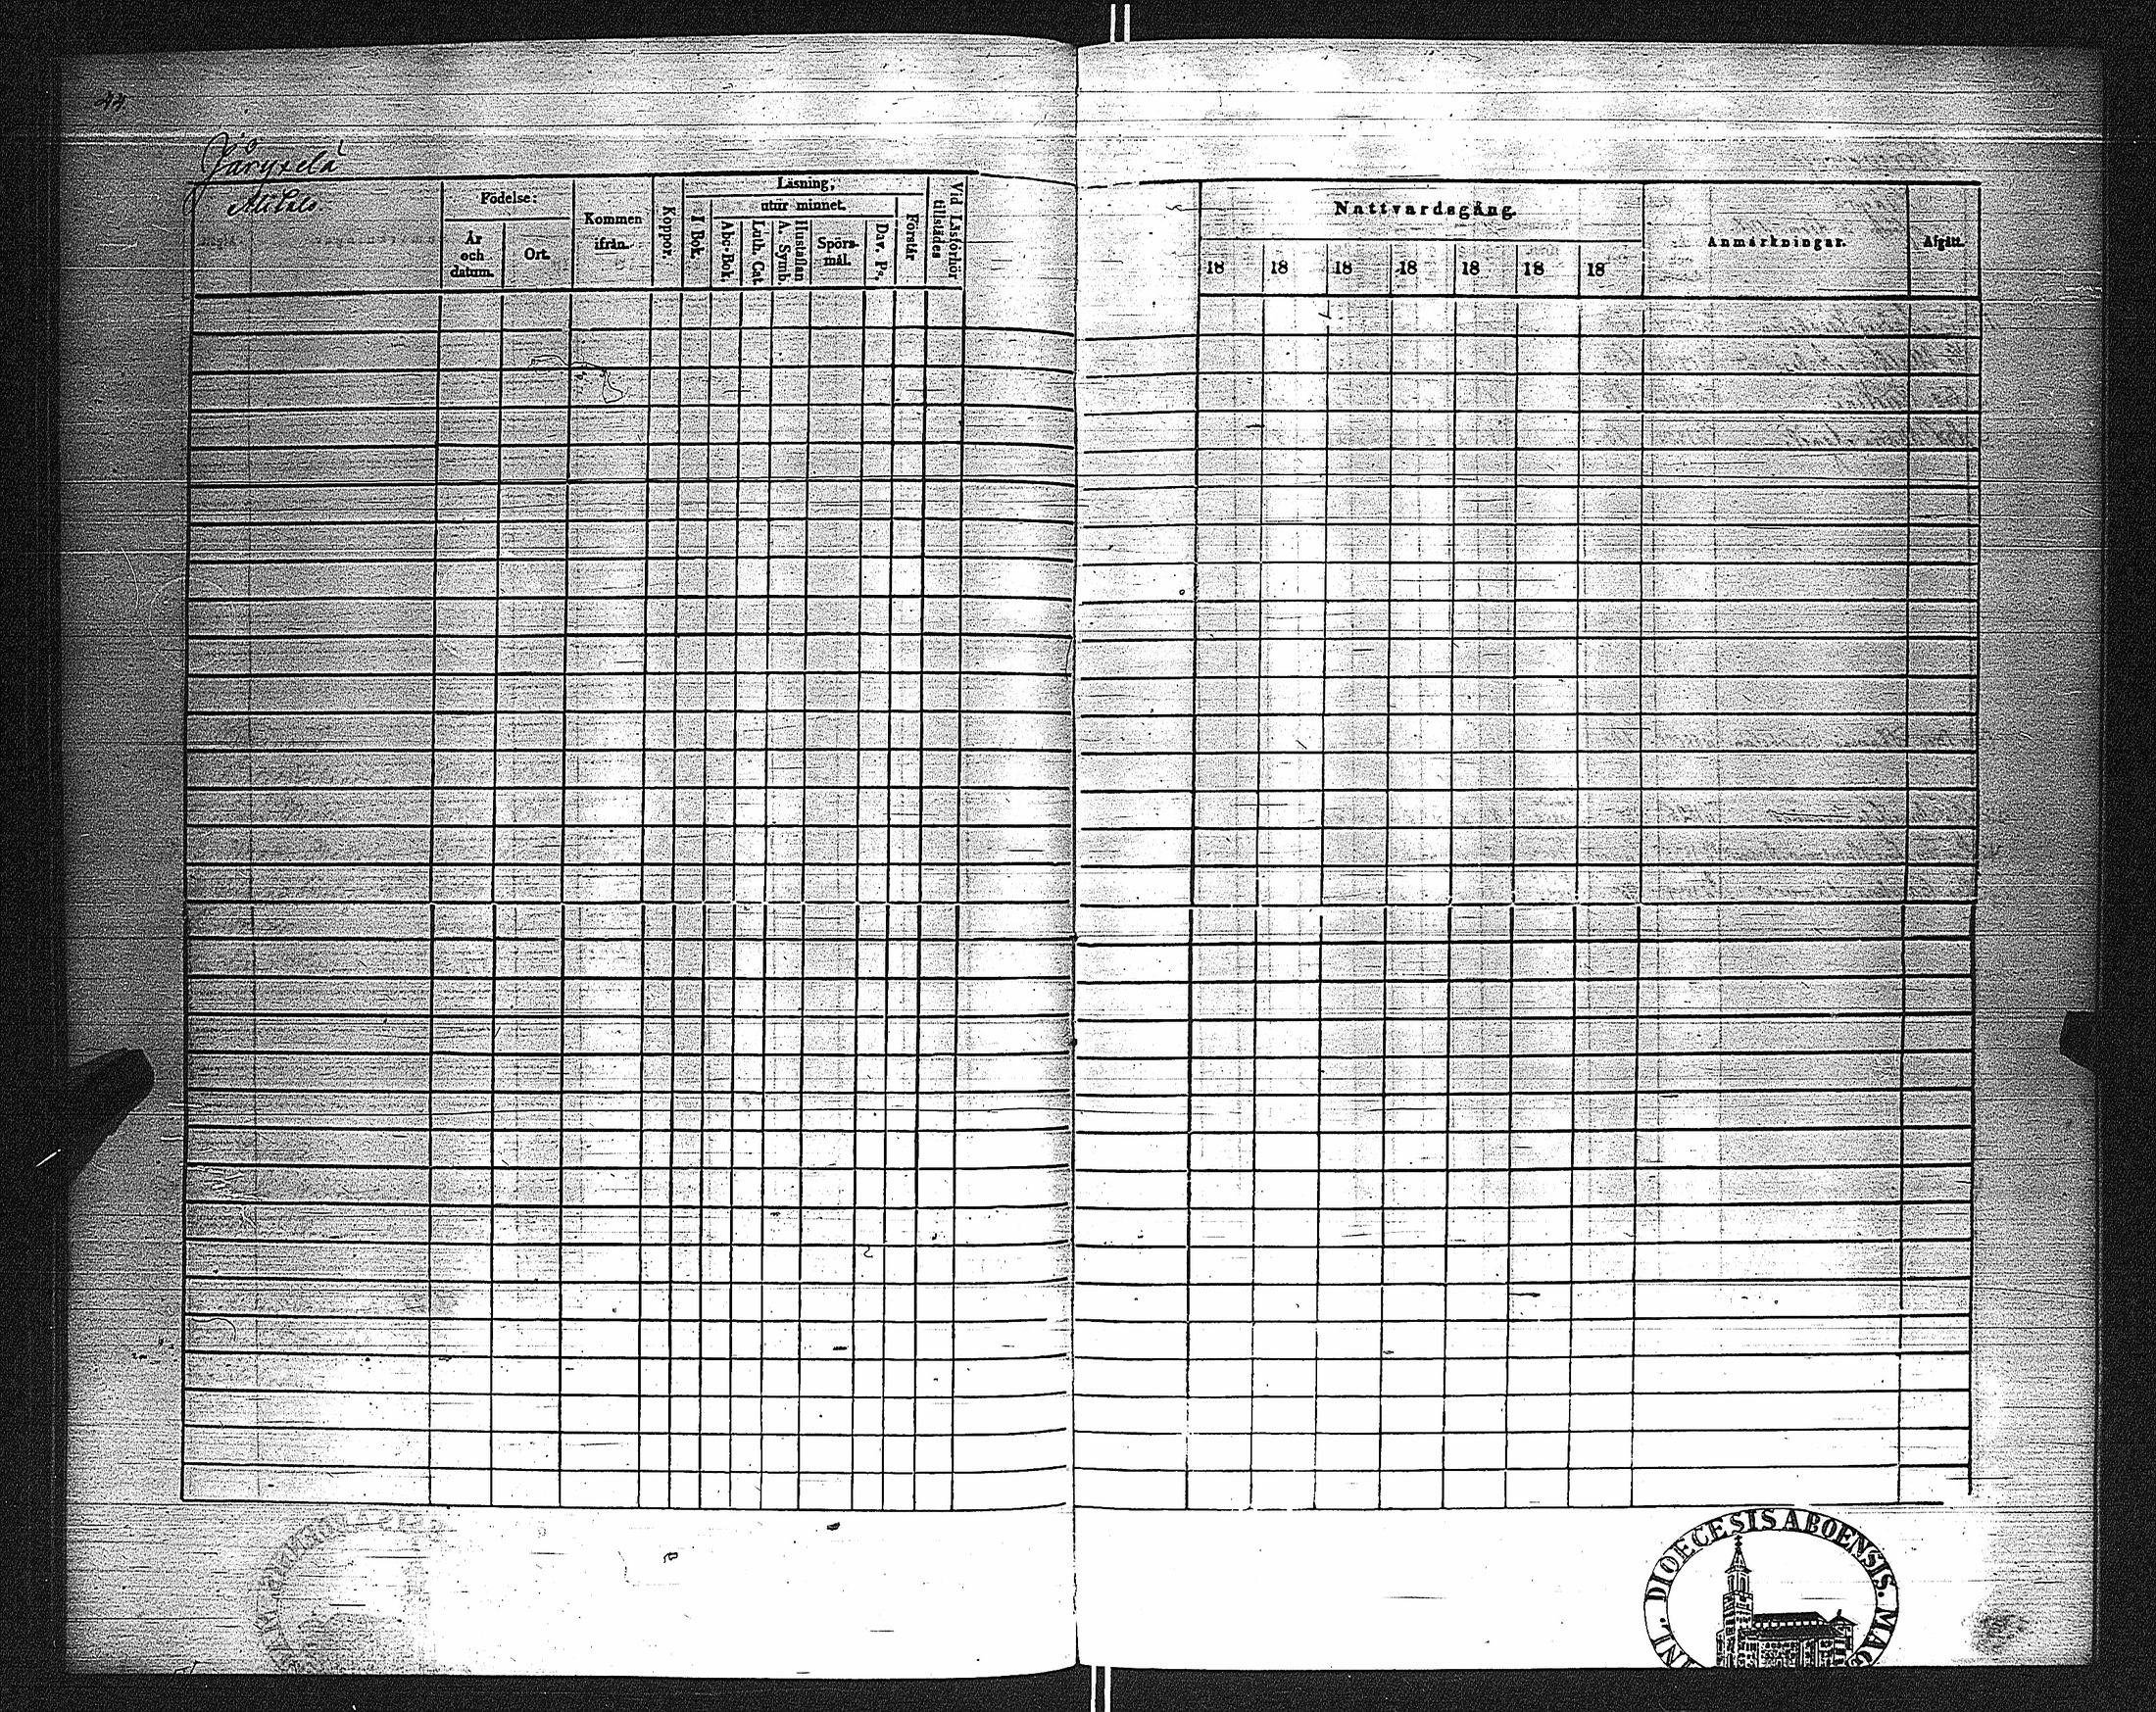 44
Järyxelä
Alitalo
Födelse:
År
och
datum.
Ort.
Kommen
ifrån.
Koppor.
Läsning,
I Bok.
utur minnet.
Abc-Bok.
Luth. Cat.
A. Symb.
Hustaflan.
Spörs-
mål.
Dav. Ps.
Förstår
Vid Läsförhör
tillstädes
Nattvardsgång.
18 18 18 18 18 18 18
Anmärkningar.
Afgått.
DIOECESIS ABOENSIS. MAG